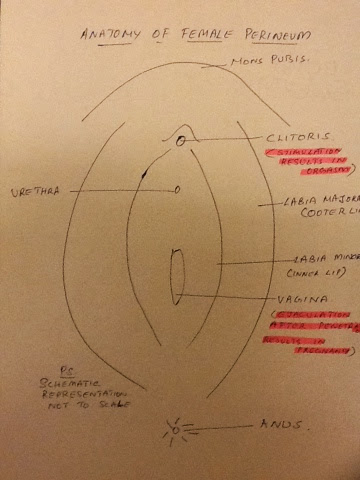 ANATOMY OF FEMALE PERINEUM
MONS PUBIS.
CLITORIS.
(STIMULATION
RESULTS IN
ORGASM)
URETHRA
LABIA MAJORA
(OUTER LIP
LABIA MINOR
(INNER LIP)
VAGINA
(EJACULATION
AFTER
RESULTS IN
PREGNANCY)
PS
SCHEMATIC
REPRESENTATION
NOT TO SCALE
ANUS.